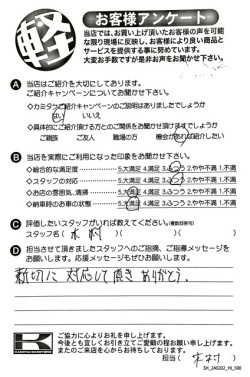 軽
お客様アンケート
当店では、お買い上げ頂いたお客様の声を可能
な限り現場に反映し、お客様により良い商品と
サービスを提供する事に努めています。
大変お手数ですが是非お声をお聞かせ下さい。
A 当店はご紹介を大切にしております。
ご紹介キャンペーンについてお聞かせ下さい。
◇カミタケ紹介キャンペーンのご説明はありましたでしょうか
はい いいえ
◇具体的にご紹介頂ける方とのご関係をお聞かせ頂けますでしょうか
ご親族 ご友人 職場の方 機会があれば紹介したい
B 当店を実際にご利用になった印象をお聞かせ下さい。
◇総合的な満足度 5.大満足 4.満足 3.ふつう 2.やや不満 1.不満
◇スタッフの対応 5.大満足 4.満足 3.ふつう 2.やや不満 1.不満
◇お店の雰囲気、清掃 5.大満足 4.満足 3.ふつう 2.やや不満 1.不満
◇納車時のお車の状態 5.大満足 4.満足 3.ふつう 2.やや不満 1.不満
C 評価したいスタッフがいれば教えてください。(複数回答可)
スタッフ名( 木村 )( )( )
D 担当させて頂きましたスタッフへのご指摘、ご指導メッセージを
お願いします。応援メッセージもぜひお願いします。
親切に対応して頂きありがとう。
ご協力に心よりお礼を申し上げます。
今後とも宜しくお引き立てご愛顧の程お願い申し上げます。
またのご来店を心からお待ちしております。
担当( 木村 )
SH_240202_HI_500